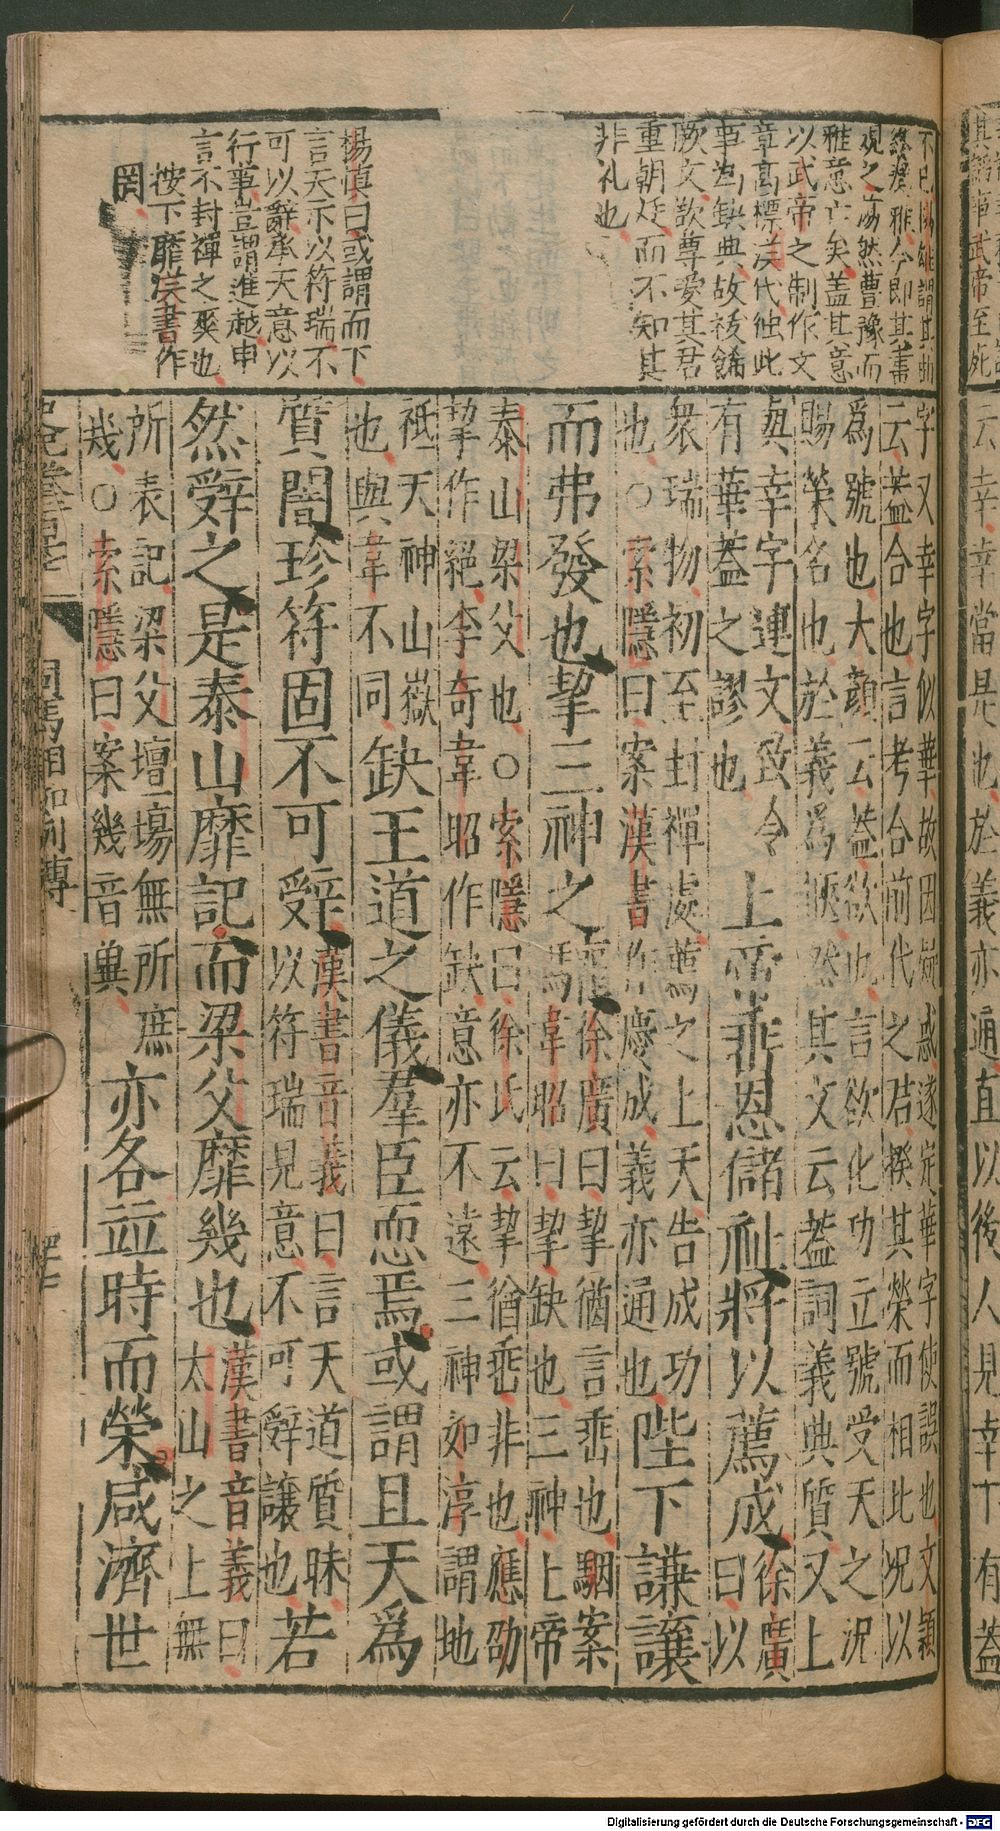 不已楊雄謂其曲
終奏雅今即其書
觀之蕩然曹豫而
雅意亡矣蓋其意
以武帝之制作文
章高標漢代獨此
事為缺典故祓飾
厥文歆尊愛其君
重朝廷而不知其
非礼也
楊慎曰或謂而下
言天示以符瑞不
可以辭承天意以
行事豈謂進越申
言不封禪之爽也
按下靡漢書作
罔
字又幸字似華故因疑惑遂定華字使誤也文穎
云蓋合也言考合前代之君揆其榮而相比况以
為號也大顔云蓋欲也言欲化功立號受天之況
賜榮名也於義為愜然其文云蓋詞義典質又上
與幸字連文致令
有華蓋之謬也
上帝垂恩儲祉將以薦成
徐廣
曰以
衆瑞物初至封禪處薦之上天告成功
也○索隱曰案漢書作慶成義亦通也
陛下謙讓
而弗發也挈三神之驩
徐廣曰挈猶言垂也駰案
韋昭曰挈缺也三神上帝
泰山梁父也○索隱曰徐氏云挈猶垂非也應劭
挈作絕李奇韋昭作缺意亦不遠三神如淳謂地
祇天神山嶽
也與韋不同
缺王道之儀羣臣恧焉或謂且天為
質闇珍符固不可辭
漢書音義曰言天道質昧
以符瑞見意不可辭讓也
若
然辭之是泰山靡記而梁父靡幾也
漢書音義曰
太山之上無
所表記梁父壇場無所庶
幾○索隱曰案幾音兾
亦各竝時而榮咸濟世
司馬相如列傳
云幸幸當是也於義亦通直以後人見幸下有蓋
Digitalisierung gefördert durch die Deutsche Forschungsgemeinschaft - DFG